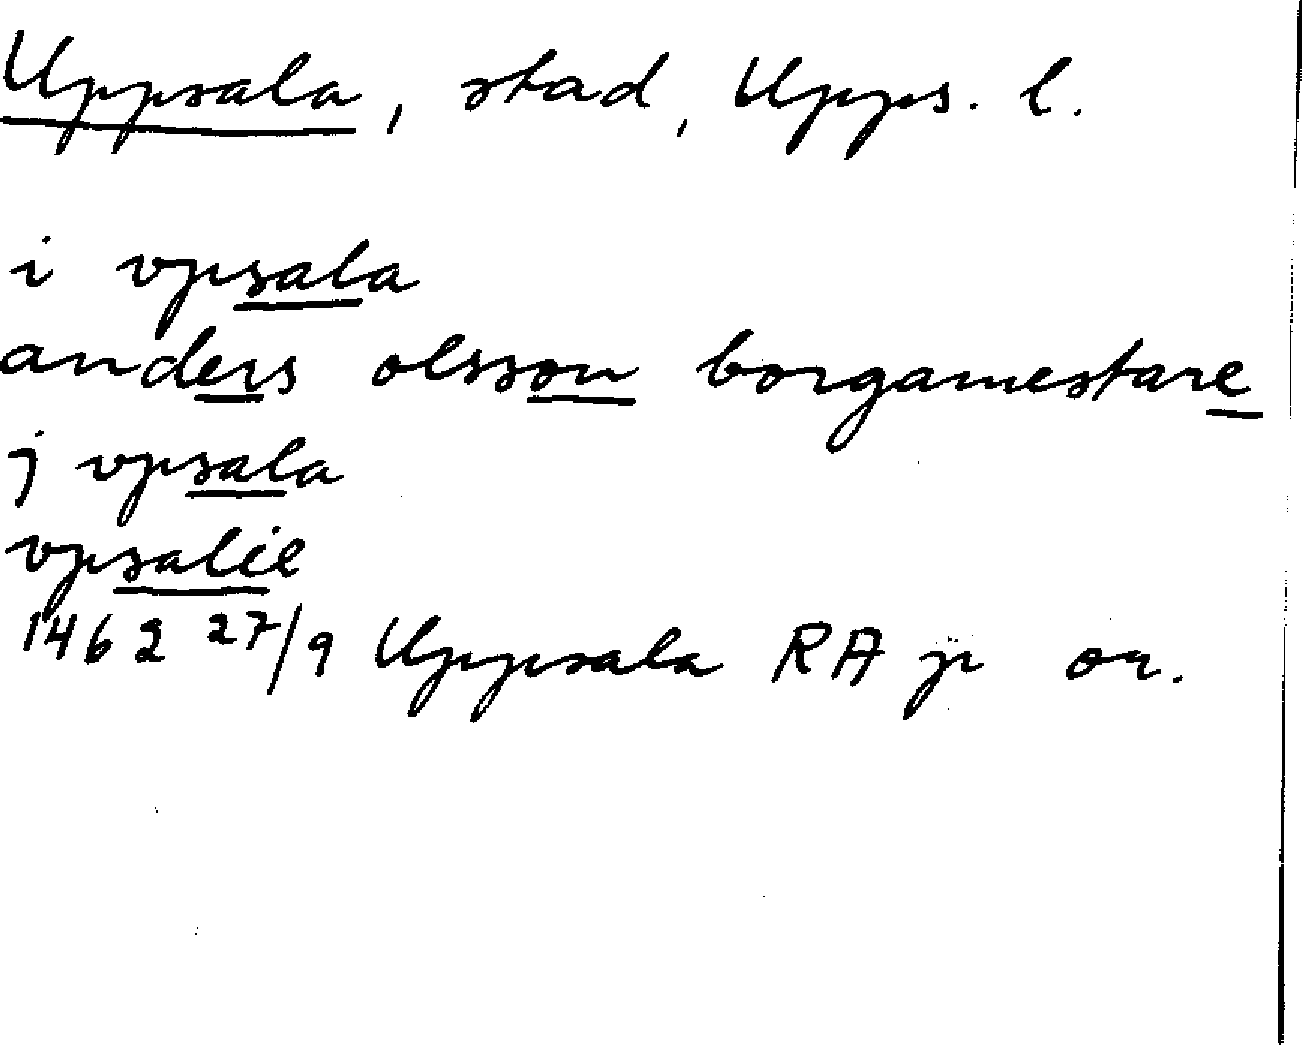 Uppsala, stad, Upps. l.
i vpsala
anders olsson borgamestare
j vpsala
vpsalie
1462 27/9 Uppsala RA p or.